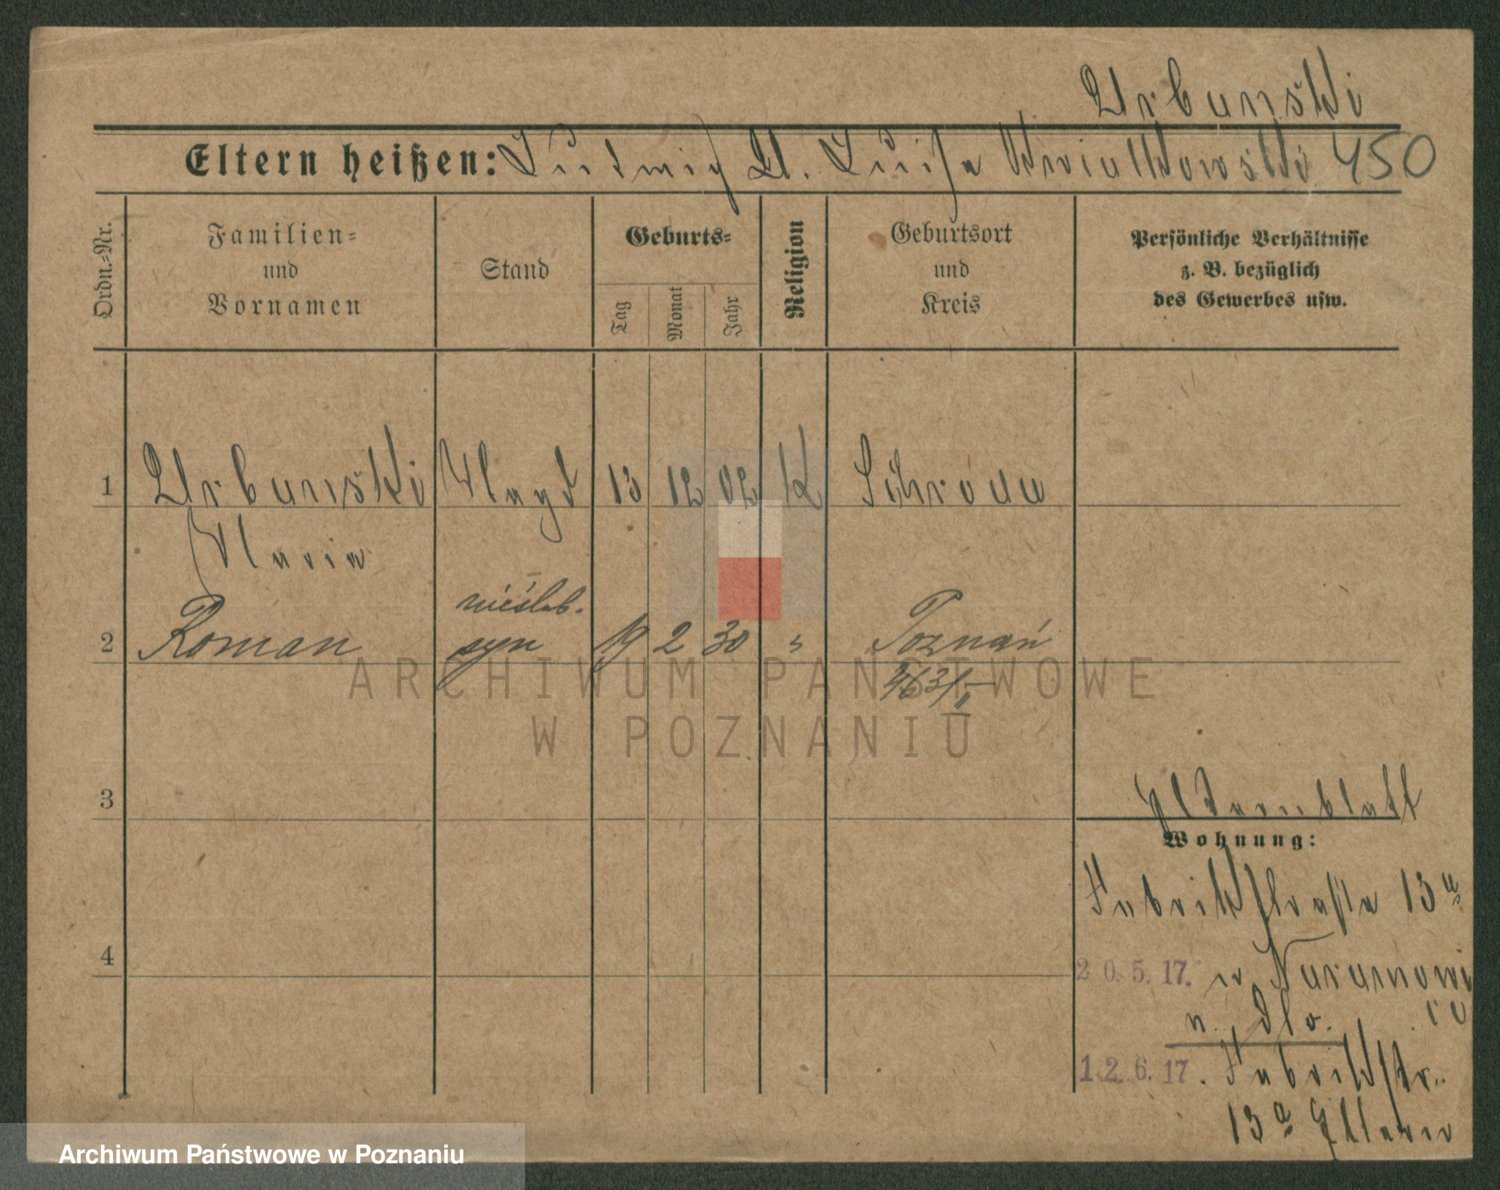 Urbanski
Eltern heißen: Ludwig U. Luise Kwiatkowski 450
Ordn.-Nr.
Familien-
und
Vornamen
Stand
Geburts-
Tag
Monat
Jahr
Religion
Geburtsort
und
Kreis
Persönliche Verhältnisse
z. B. bezüglich
des Gewerbes usw.
1 Urbanski Magd 13 12 02 K Schroda
Maria
nieślub.
2 Roman syn 19 2 30 " Poznań
ARCHIWUM PAŃSTWOWE
W POZNANIU
3
Elternblatt
Wohnung:
Fabrikstraße 13a
4
20.5.17.
n. dto.
12.6.17. Fabrikstr.
13a Eltern
Archiwum Państwowe w Poznaniu